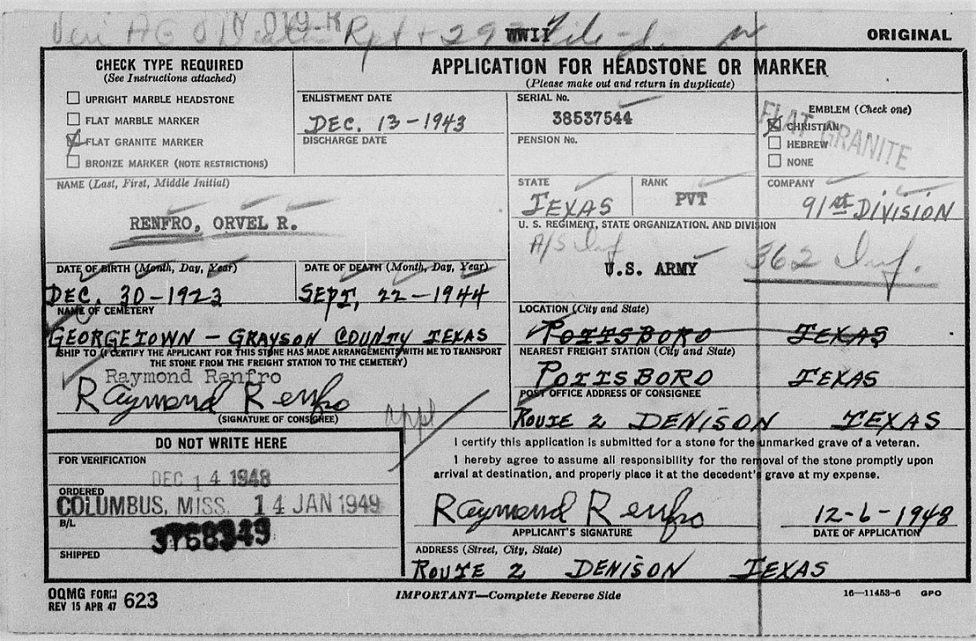 WWII
ORIGINAL
CHECK TYPE REQUIRED
(See Instructions attached)
UPRIGHT MARBLE HEADSTONE
FLAT MARBLE MARKER
FLAT GRANITE MARKER
BRONZE MARKER (NOTE RESTRICTIONS)
APPLICATION FOR HEADSTONE OR MARKER
(Please make out and return in duplicate)
ENLISTMENT DATE
DEC. 13-1943
DISCHARGE DATE
SERIAL No.
38537544
PENSION No.
EMBLEM (Check one)
CHRISTIAN
HEBREW
NONE
FLAT GRANITE
NAME (Last, First, Middle Initial)
RENFRO, ORVEL R.
STATE
TEXAS
RANK
PVT
COMPANY
91st DIVISION
U. S. REGIMENT, STATE ORGANIZATION, AND DIVISION
A/S Inf
U.S. ARMY
362 Inf.
DATE OF BIRTH (Month, Day, Year)
DEC. 30-1923
DATE OF DEATH (Month, Day, Year)
SEPT, 22-1944
NAME OF CEMETERY
GEORGETOWN - GRAYSON COUNTY TEXAS
LOCATION (City and State)
POTTSBORO TEXAS
SHIP TO (I CERTIFY THE APPLICANT FOR THIS STONE HAS MADE ARRANGEMENTS WITH ME TO TRANSPORT
THE STONE FROM THE FREIGHT STATION TO THE CEMETERY)
Raymond Renfro
Raymond Renfro
(SIGNATURE OF CONSIGNEE)
appl
NEAREST FREIGHT STATION (City and State)
POTTSBORO TEXAS
POST OFFICE ADDRESS OF CONSIGNEE
ROUTE 2 DENISON TEXAS
DO NOT WRITE HERE
FOR VERIFICATION
DEC 14 1948
ORDERED
COLUMBUS, MISS. 14 JAN 1949
B/L
3768349
SHIPPED
I certify this application is submitted for a stone for the unmarked grave of a veteran.
I hereby agree to assume all responsibility for the removal of the stone promptly upon
arrival at destination, and properly place it at the decedent's grave at my expense.
Raymond Renfro 12-6-1948
APPLICANT'S SIGNATURE DATE OF APPLICATION
ADDRESS (Street, City, State)
ROUTE 2 DENISON TEXAS
OQMG FORM
REV 15 APR 47 623
IMPORTANT—Complete Reverse Side
16—11453-6 GPO